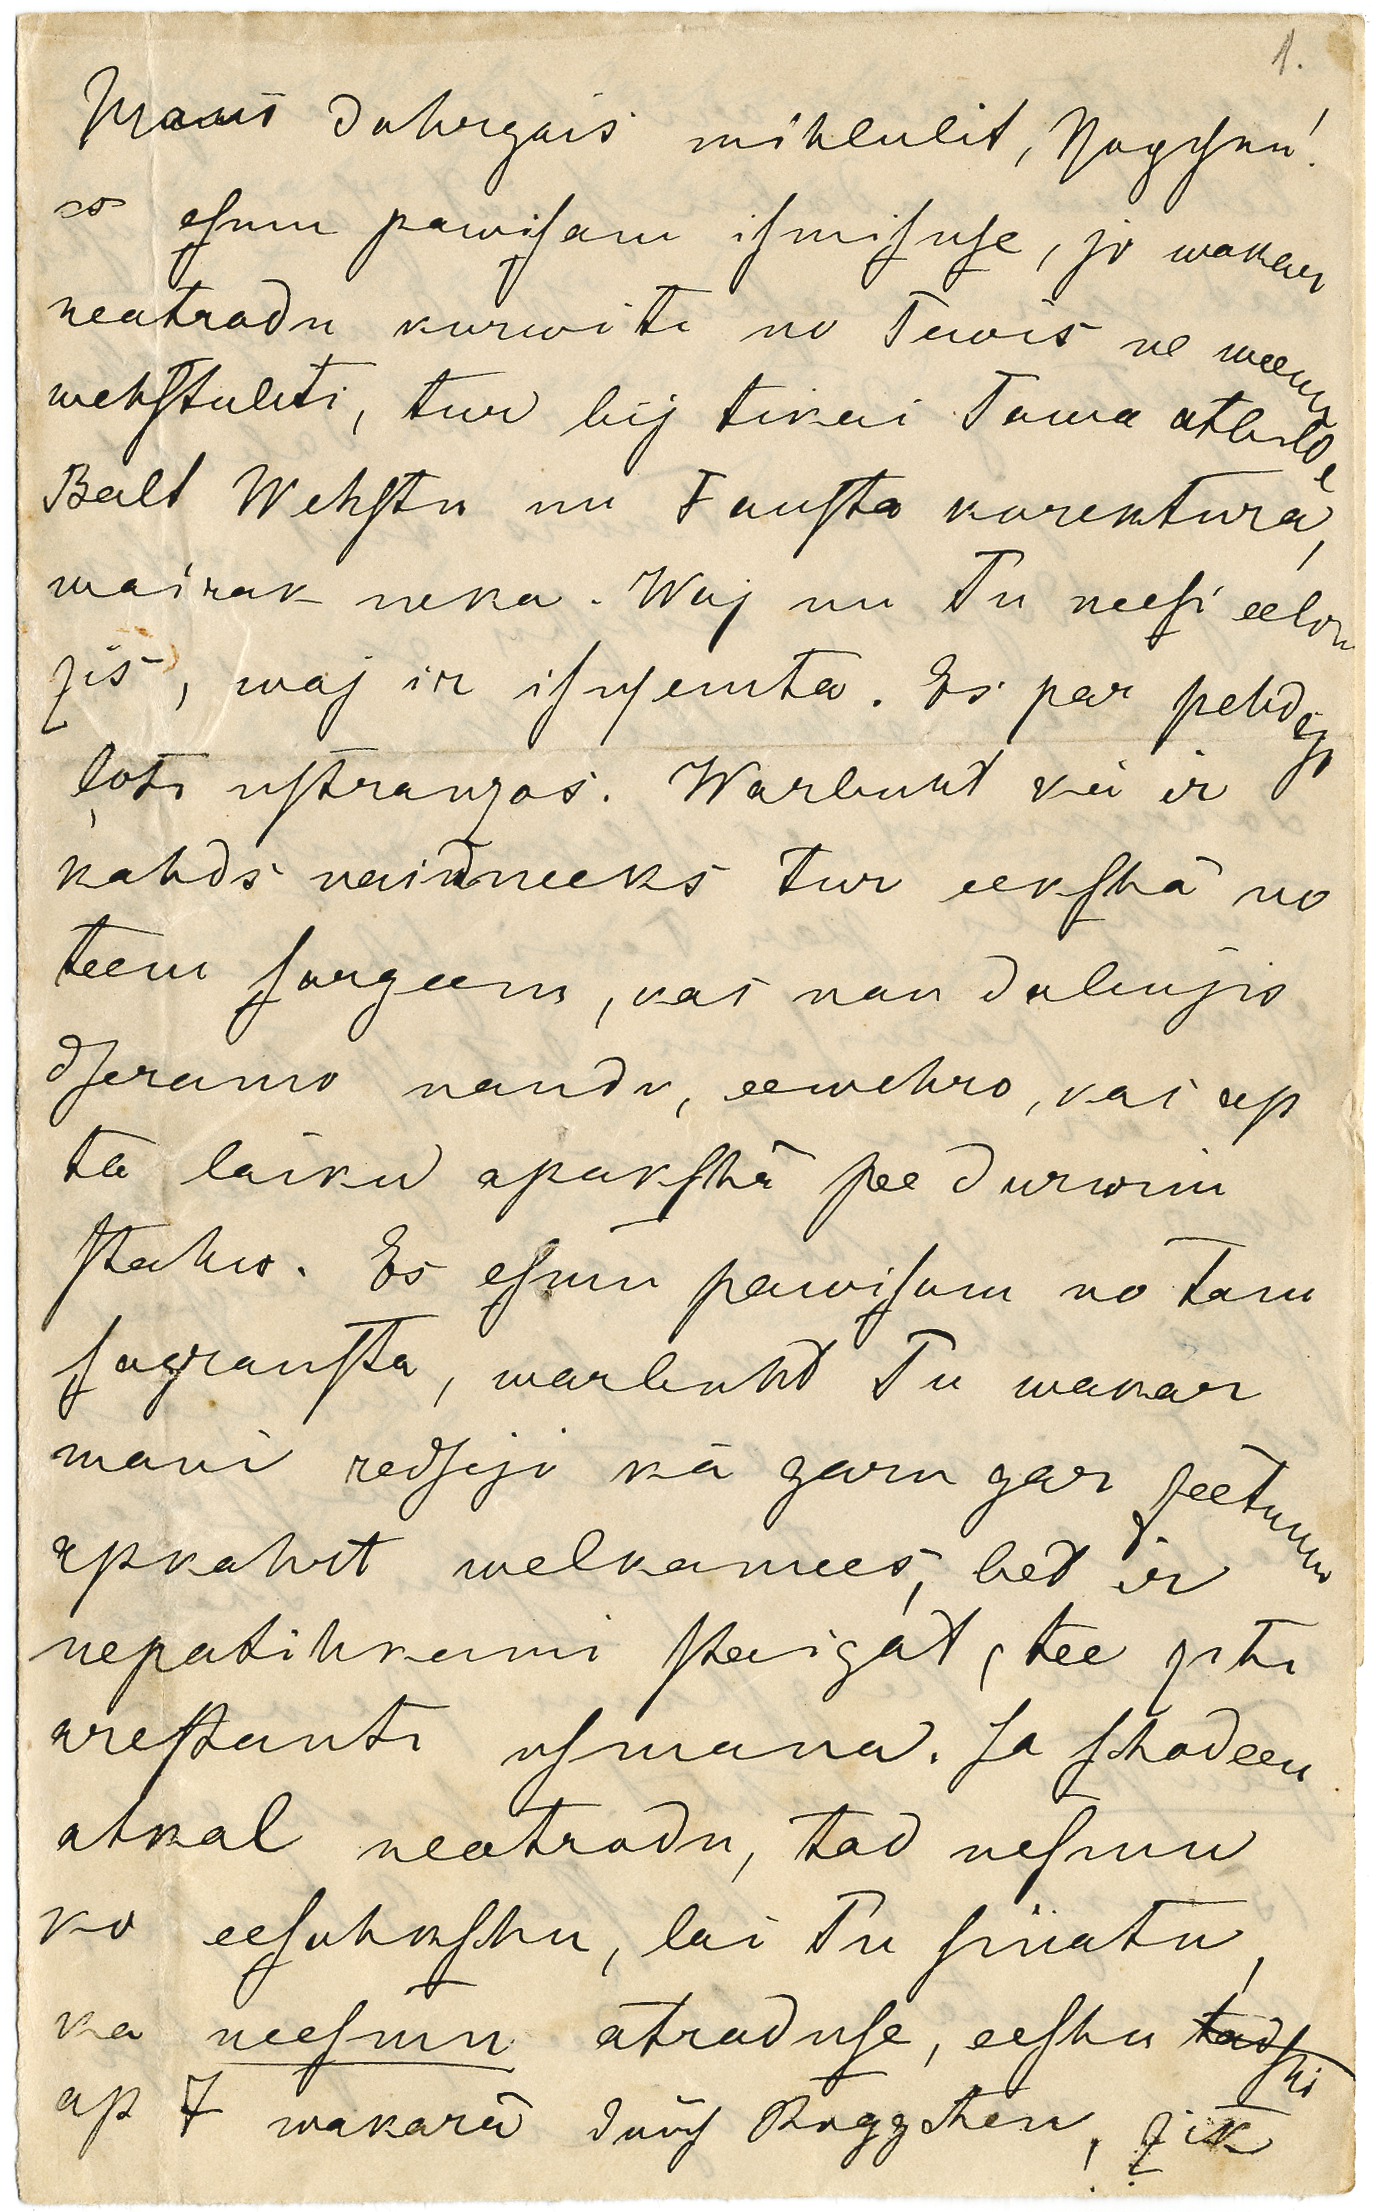 1.
Mans dahrgais mihlulit,
es esmu pawisam ismisuse, jo wakar
neatradu kurwiti no Tewis ne weenu
wehstuliti, tur bij tikai Tawa atbilde
Balt Wehstn un Fausta korektura,
wairak neka. Waj nu Tu neesi eelou
zis, waj ir isnemta. Es par pehdejo
ļoti ustrauzos. Warbuht ka ir
kahds naidneeks tur eekschâ no
teem sargeem, kas nau dabujis
dseramo naudu, eewehro, kas ap
to laiku apakschâ pee durwim
stahw. Es esmu pawisam no tam
sagrausta, warbuht Tu wakar
mani redseji kâ garu gar zeetumu
apkahrt welkamees, bet ir
nepatihkami staigat, tee ziti
arestanti usmana. Ja schodeen
atkal neatradu, tad nesinu
ko eesahkschu, lai Tu sinatu,
ka neesmu atraduse, eeschu
ap 7 wakarâ zik